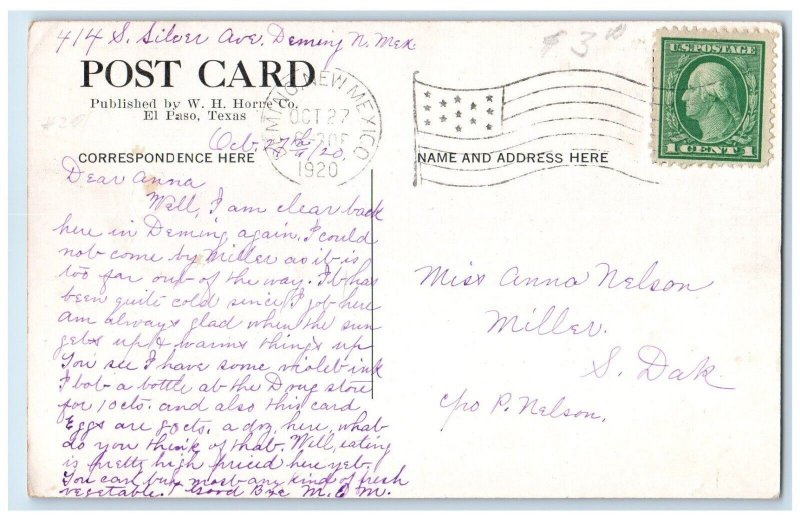 414 S. Silver Ave. Deming N. Mex
$3.00
POST CARD
Published by W. H. Horne Co.
El Paso, Texas
Oct. 27th/20.
DEMING, NEW MEXICO
OCT 27
1920
U.S. POSTAGE
1 CENT 1
CORRESPONDENCE HERE
NAME AND ADDRESS HERE
Dear Anna
Well, I am clear back
here in Deming again. I could
not come by Miller as it is
too far out of the way. It has
been quite cold since I got here
am always glad when the sun
gets up & warms things up
You see I have some violet ink
I got a bottle at the Drug store
for 10cts. and also this card
Eggs are 80cts. a doz. here, what
do you think of that. Well, eating
is pretty high priced here yet.
You can buy most any kind of fresh
vegetable. Good Bye M. O. M.
Miss Anna Nelson
Miller.
S. Dak
c/o P. Nelson.